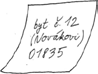 byt č 12
(Novákovi)
01835